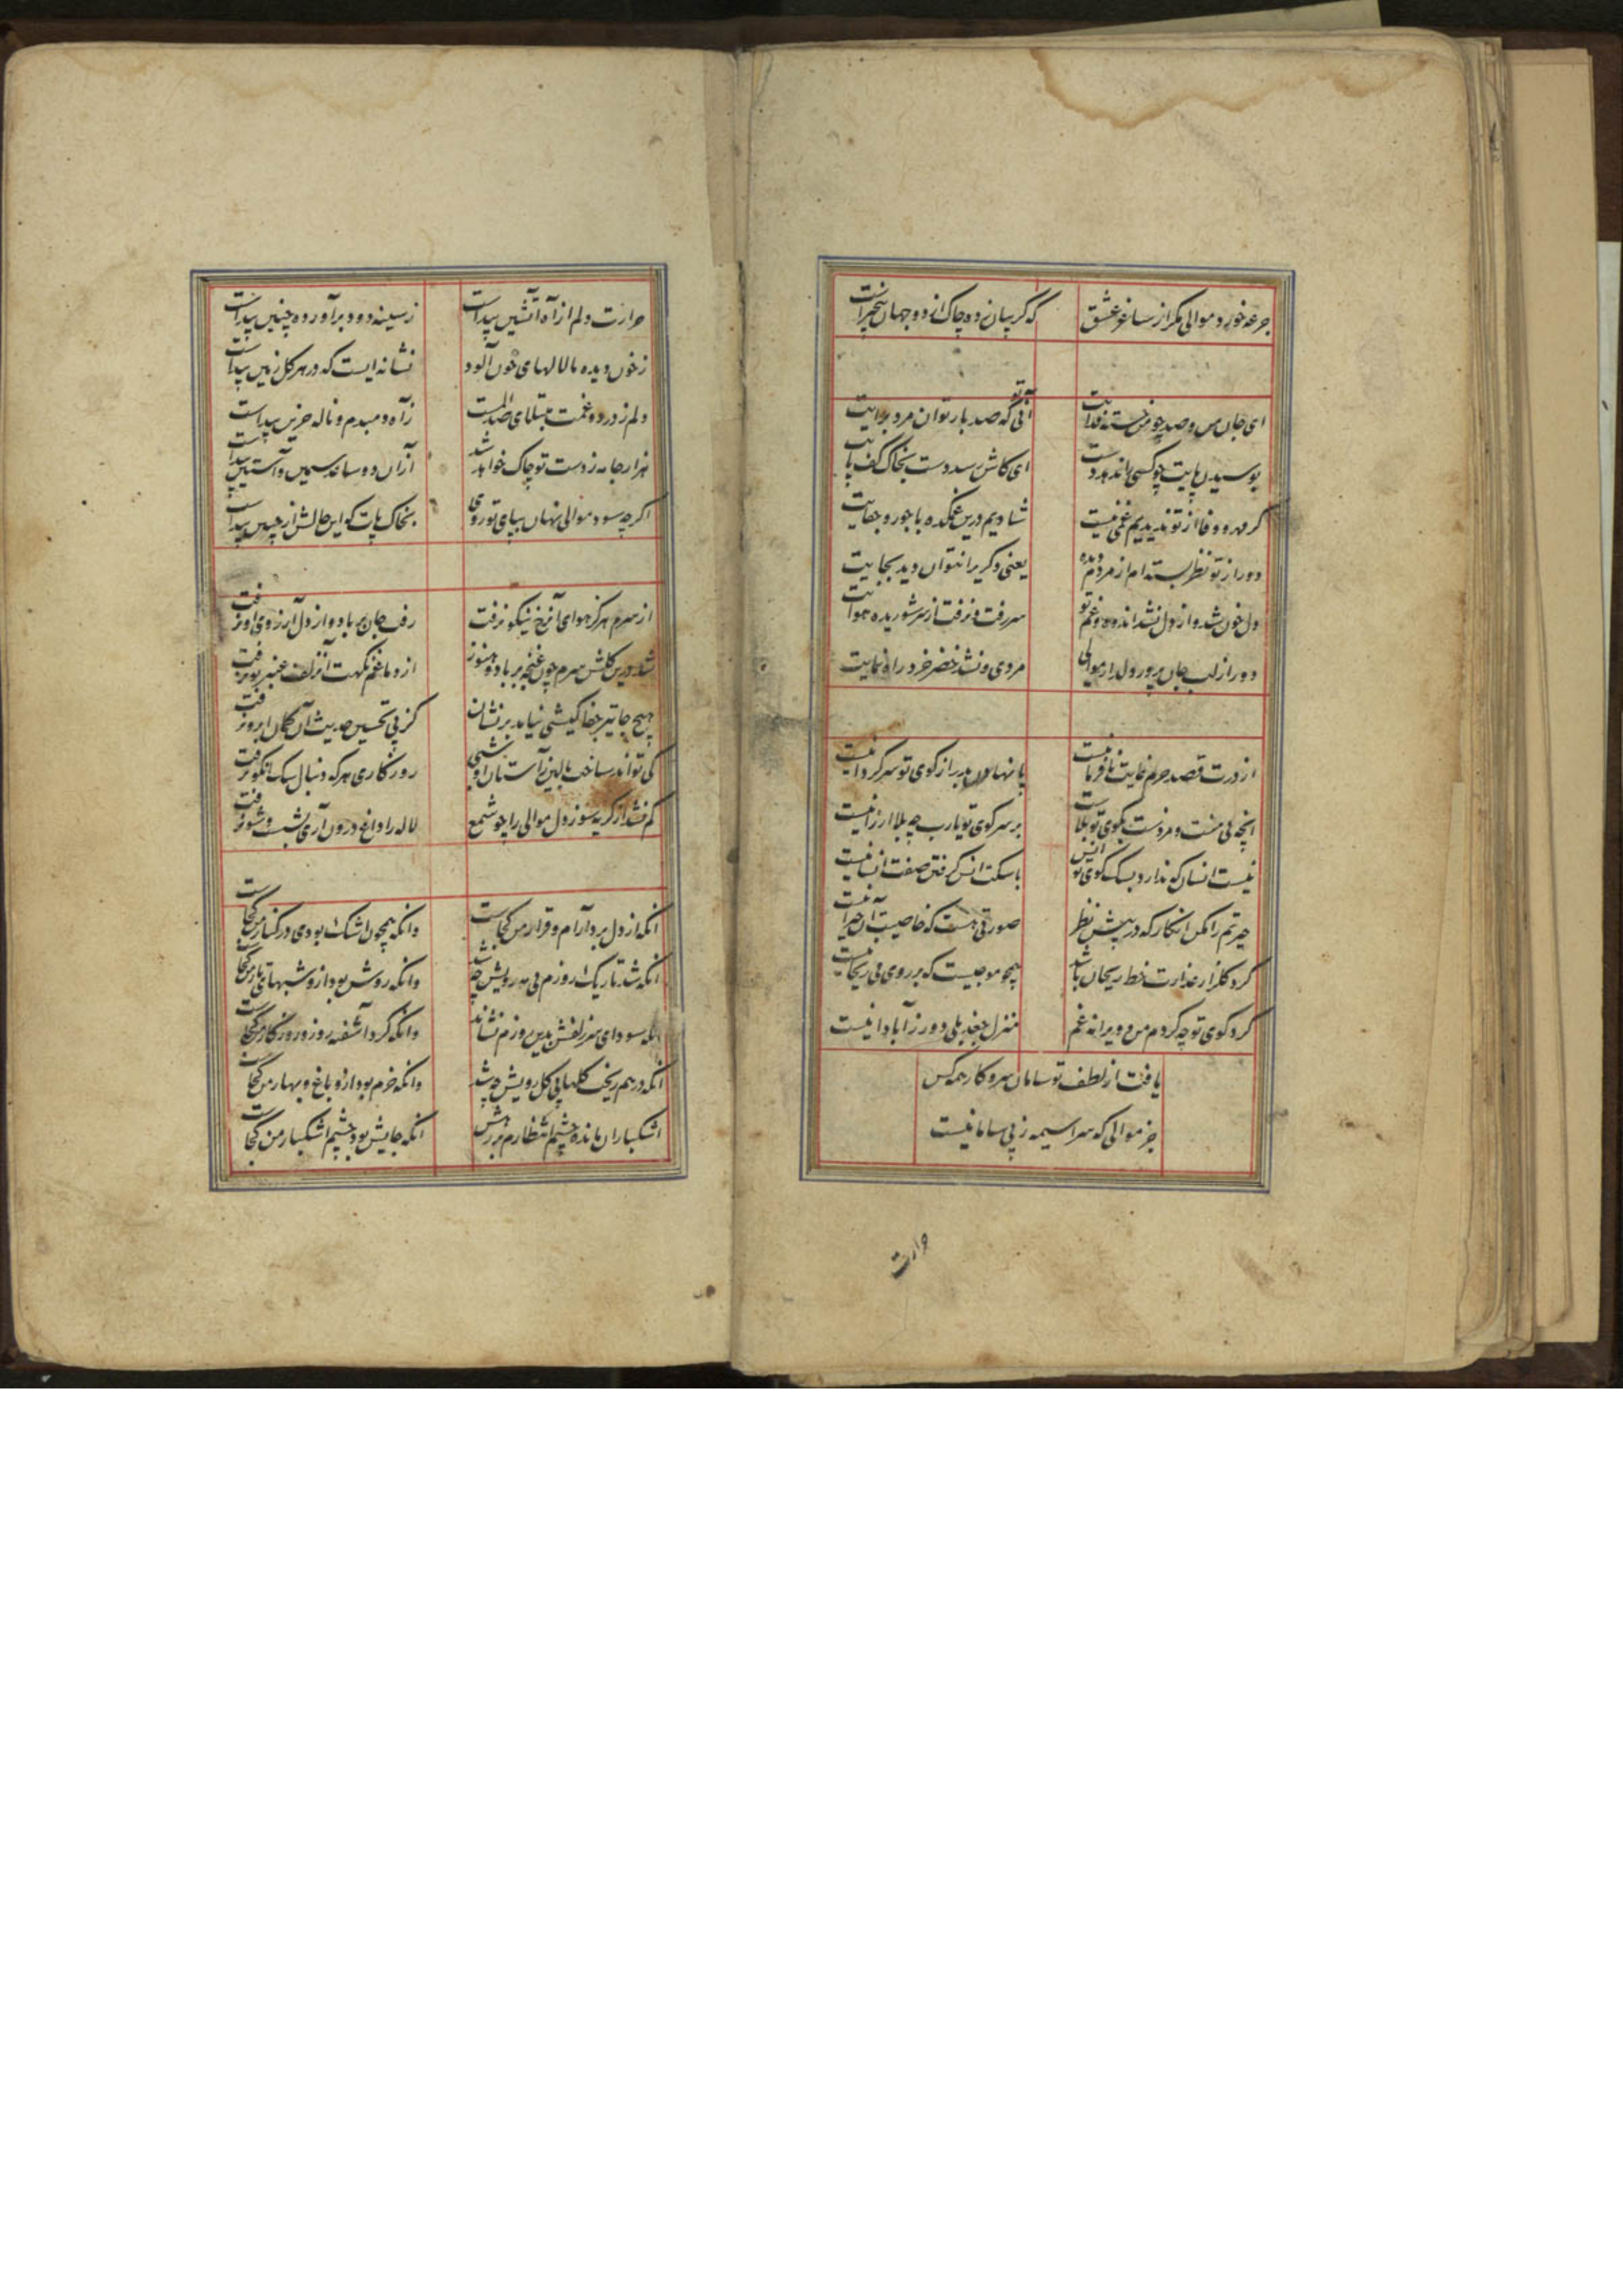 جرعه خورد موالی مکر از ساغر عشق که کریبان زده چاک از دو جهان بیخبرست
ای جان من و صد چو من خسته فدایت آنی که صد بار توان مرد برایت
بوسیدن پایت چو کسی را ندهد دست ای کاش رسد دست بخاک کف پایت
کر مهر و وفا از تو ندیدیم غمی نیست شادیم درین غمکده با جور و جفایت
دور از تو نظر بسته ام از مردم دیده یعنی دکریرا نتوان دید بجایت
دل خون شد و از دل نشد اندوه و غم تو سر رفت و نرفت از سر شوریده هوایت
دور از لب جان پرور دلدار موالی مردی و نشد خضر خرد راه نمایت
از درت قصد حرم غایت نافرمانیست پا نهادن بدر از کوی تو سرکردانیست
انچه بی منت و مزدست بکوی تو بلاست بر سر کوی تو یارب چه بلا ارزانیست
نیست انسان کو ندارد بسک کوی تو انس با سکت انس کرفتن صفت انسانیست
حیرتم را مکن انکار که در پیش نظر صورتی هست که خاصیت آن حیرانیست
کرد کلزار عذارت خط ریحان باشد همچو موجیست که بر روی می ریحانیست
کرد کوی تو چه کردم من و ویرانه غم منزل جغد بلی دور ز آبادانیست
یافت از لطف تو سامان سر و کار همه کس
جز موالی که سراسیمه ز بی سامانیست
حرارت
حرارت دلم از آه آتشین پیداست ز سینه دود برآورده چنین پیداست
ز خون دیده ما لالهای خون آلود نشانه ایست که در هر کل زمین پیداست
دلم ز درد و غمت مبتلای صد المست ز آه دمبدم و ناله حزین پیداست
هزار جامه ز دست تو چاک خواهد شد از آن دو ساعد سیمین و آستین پیداست
اکرچه سود موالی نهان بپای تو روی بخاک پات که این حالش از جبین پیداست
از سرم هرکز هوای آن رخ نیکو نرفت رفت جان بر باد و از دل آرزوی او نرفت
شد درین کلشن سرم چون غنچه بر باد و هنوز از دماغم نکهت آن زلف عنبر بو نرفت
هیچ جا تیر جفا کیشی نیامد بر نشان کز پی تحسین حدیث آن کمان ابرو نرفت
کی تواند ساخت بالین ز آستان او شبی روزکاری هر که دنبال سک آن کو نرفت
کم نشد از کریه سوز دل موالی را چو شمع لاله را داغ درون آری بشست و شو نرفت
انکه از دل برد آرام و قرار من کجاست وانکه همچون اشک بودی در کنار من کجاست
انکه شد تاریک روزم بی مه رویش چه شد وانکه روشن بود ازو شبهای تار من کجاست
انکه سودای سر زلفش بدین روزم نشاند وانکه کرد آشفته روز و روزکار من کجاست
انکه در هم ریخت کلها بی کل رویش چه شد وانکه خرم بود ازو باغ و بهار من کجاست
اشکباران مانده چشم انتظارم بر رهش انکه جایش بود چشم اشکبار من کجاست